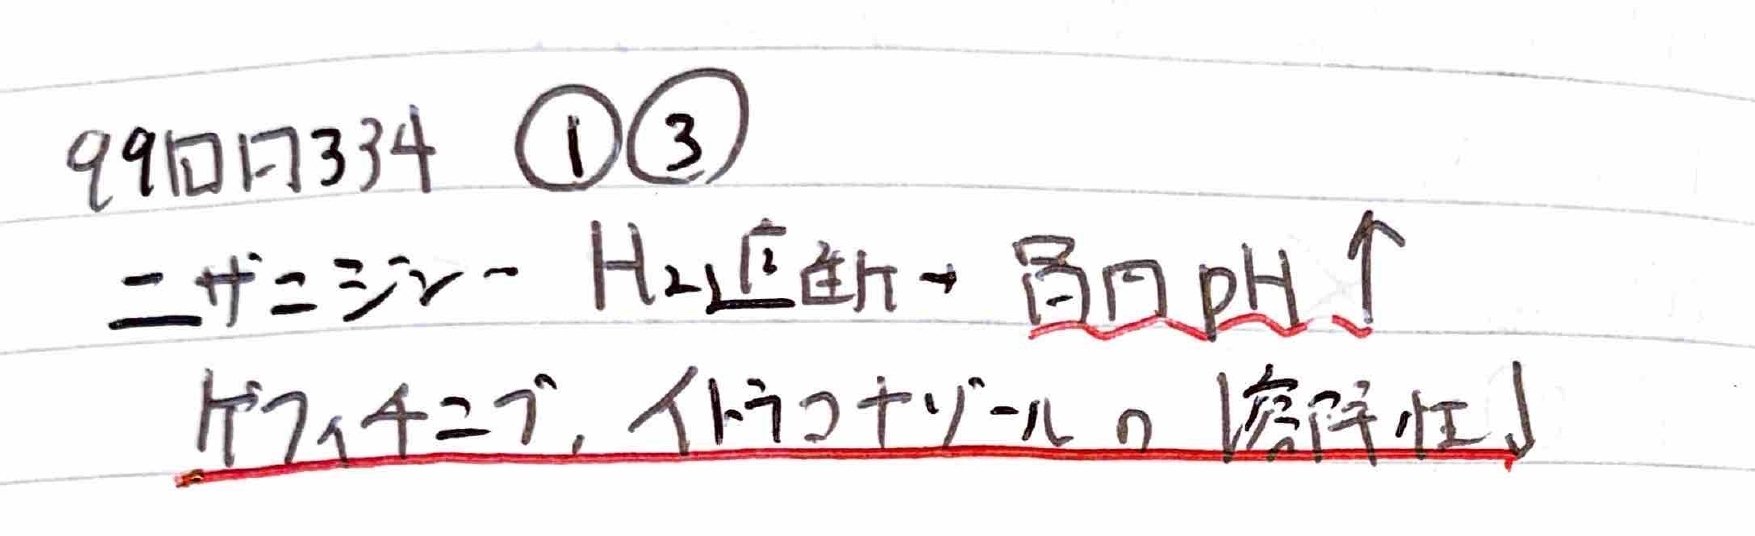 99回問334 ①③
ニザチジン- H2遮断→胃内pH↑
ゲフィチニブ, イトラコナゾールの溶解性↓